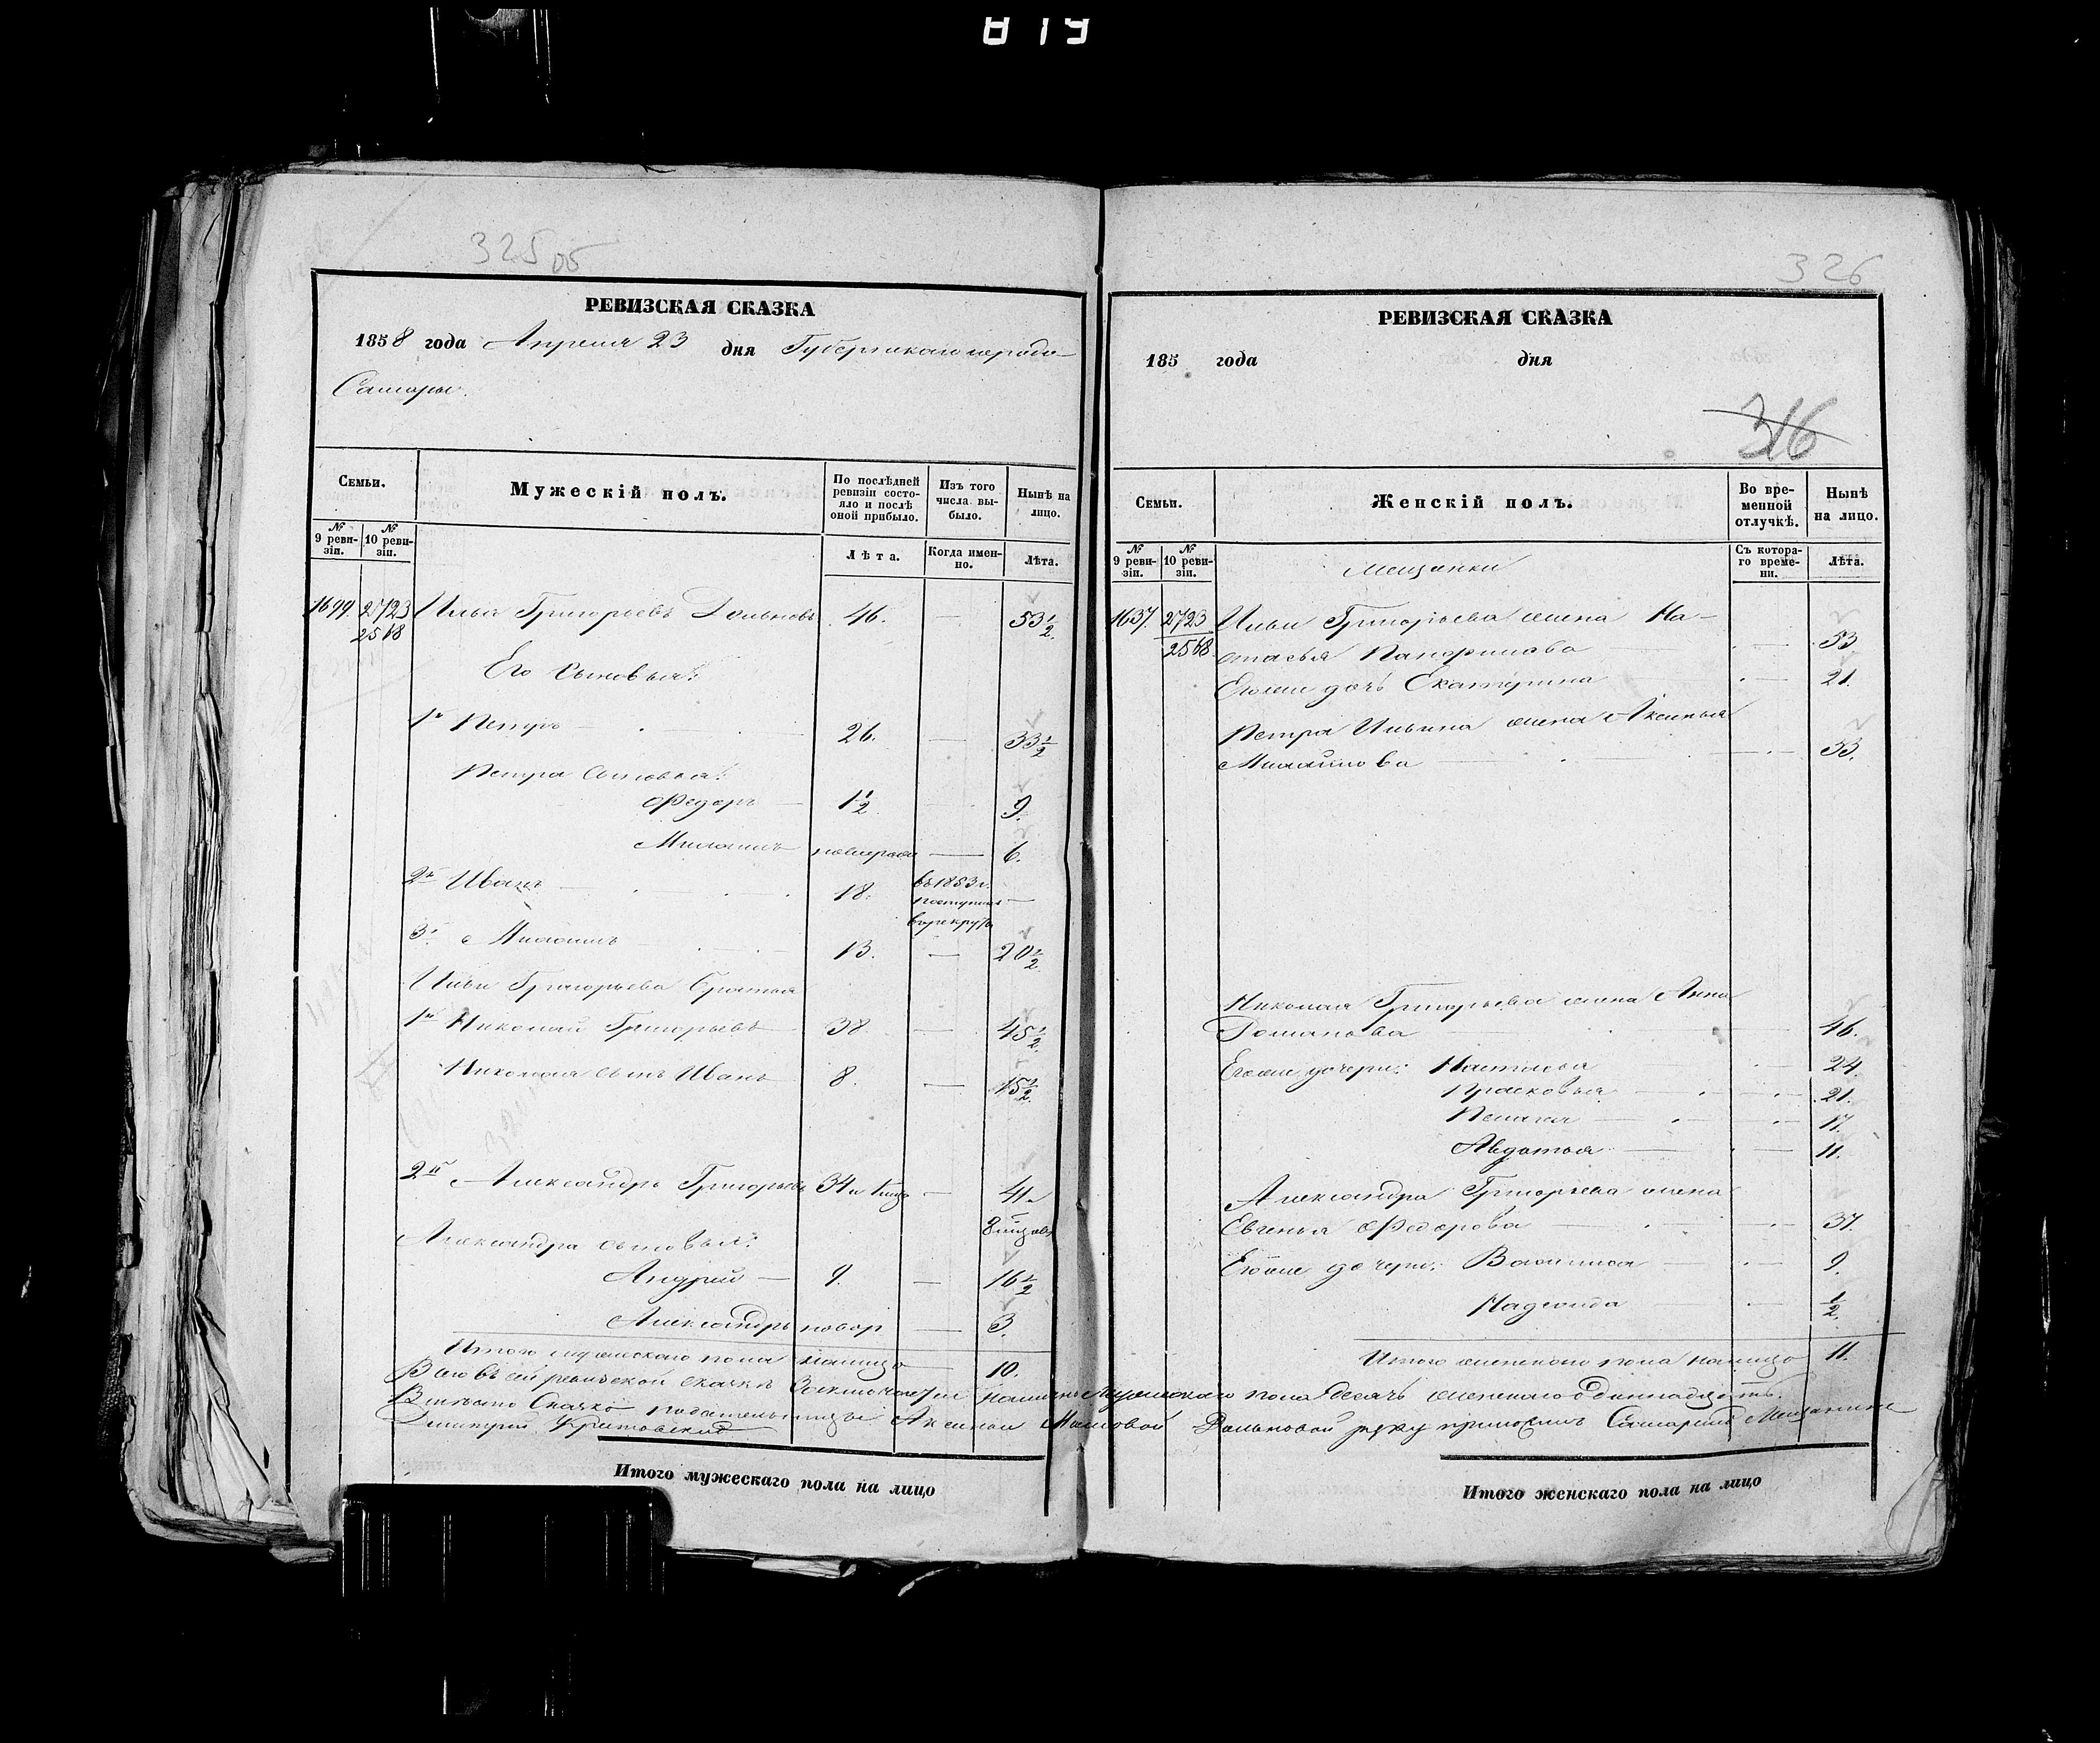 819
325 об
РЕВИЗСКАЯ СКАЗКА
1858 года Апреля 23 дня Губернскаго города
Самары.
Семьи.
Мужескій полъ.
По послѣдней ревизіи состояло и послѣ оной прибыло.
Изъ того числа выбыло.
Нынѣ на лицо.
№ 9 ревизіи.
№ 10 ревизіи.
Лѣта.
Когда именно.
Лѣта.
2723 Илья Григорьевъ 46. — 53 1/2
2568
Его сыновья:
1й Петръ 26. — 33 1/2
Петра сыновья:
Федоръ 1 1/2 9.
Михаилъ — 6.
2й Иванъ 18. въ 1853 г. поступилъ въ рекруты
3й Михаилъ 13. — 20 1/2
Ильи Григорьева братья
1й Николай Григорьевъ 38. — 45 1/2
Николая сынъ Иванъ 8. — 15 1/2
2й Александръ Григорьевъ 34 — 41
Александра сыновья:
Андрей — 9. — 16 1/2
Александръ новор — 3.
Итого мужескаго пола налицо 10.
Итого мужескаго пола на лицо
326
РЕВИЗСКАЯ СКАЗКА
185 года дня
316
Семьи.
Женскій полъ.
Во временной отлучкѣ.
Нынѣ на лицо.
№ 9 ревизіи.
№ 10 ревизіи.
Съ котораго времени.
Лѣта.
Мещанки
1637. 2723 Ильи Григорьева жена На-
2568 стасья — 53
Его же дочь Екатерина — 21.
Петра Ильина жена Аксинья
Михайлова — 33.
Николая Григорьева жена Анна
Романова 46.
Его же дочери: Настасья — 24.
Прасковья — 21.
Пелагея — 17.
Авдотья — 11.
Александра Григорьева жена
Евгенья Федорова — 37.
Его же дочери: Василиса — 9.
Надежда — 1/2
Итого женскаго пола налицо 11.
Всего въ сей ревизской сказкѣ заключается налицо мужескаго пола десять женскаго одиннадцать.
Вмѣсто Аксиньи руку приложилъ Самарскій Мещанинъ
Дмитрій
Итого женскаго пола на лицо